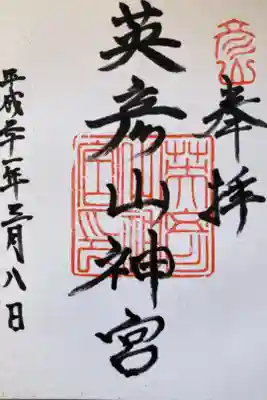 彦山
奉拝
英彦山神宮
平成二十一年三月八日